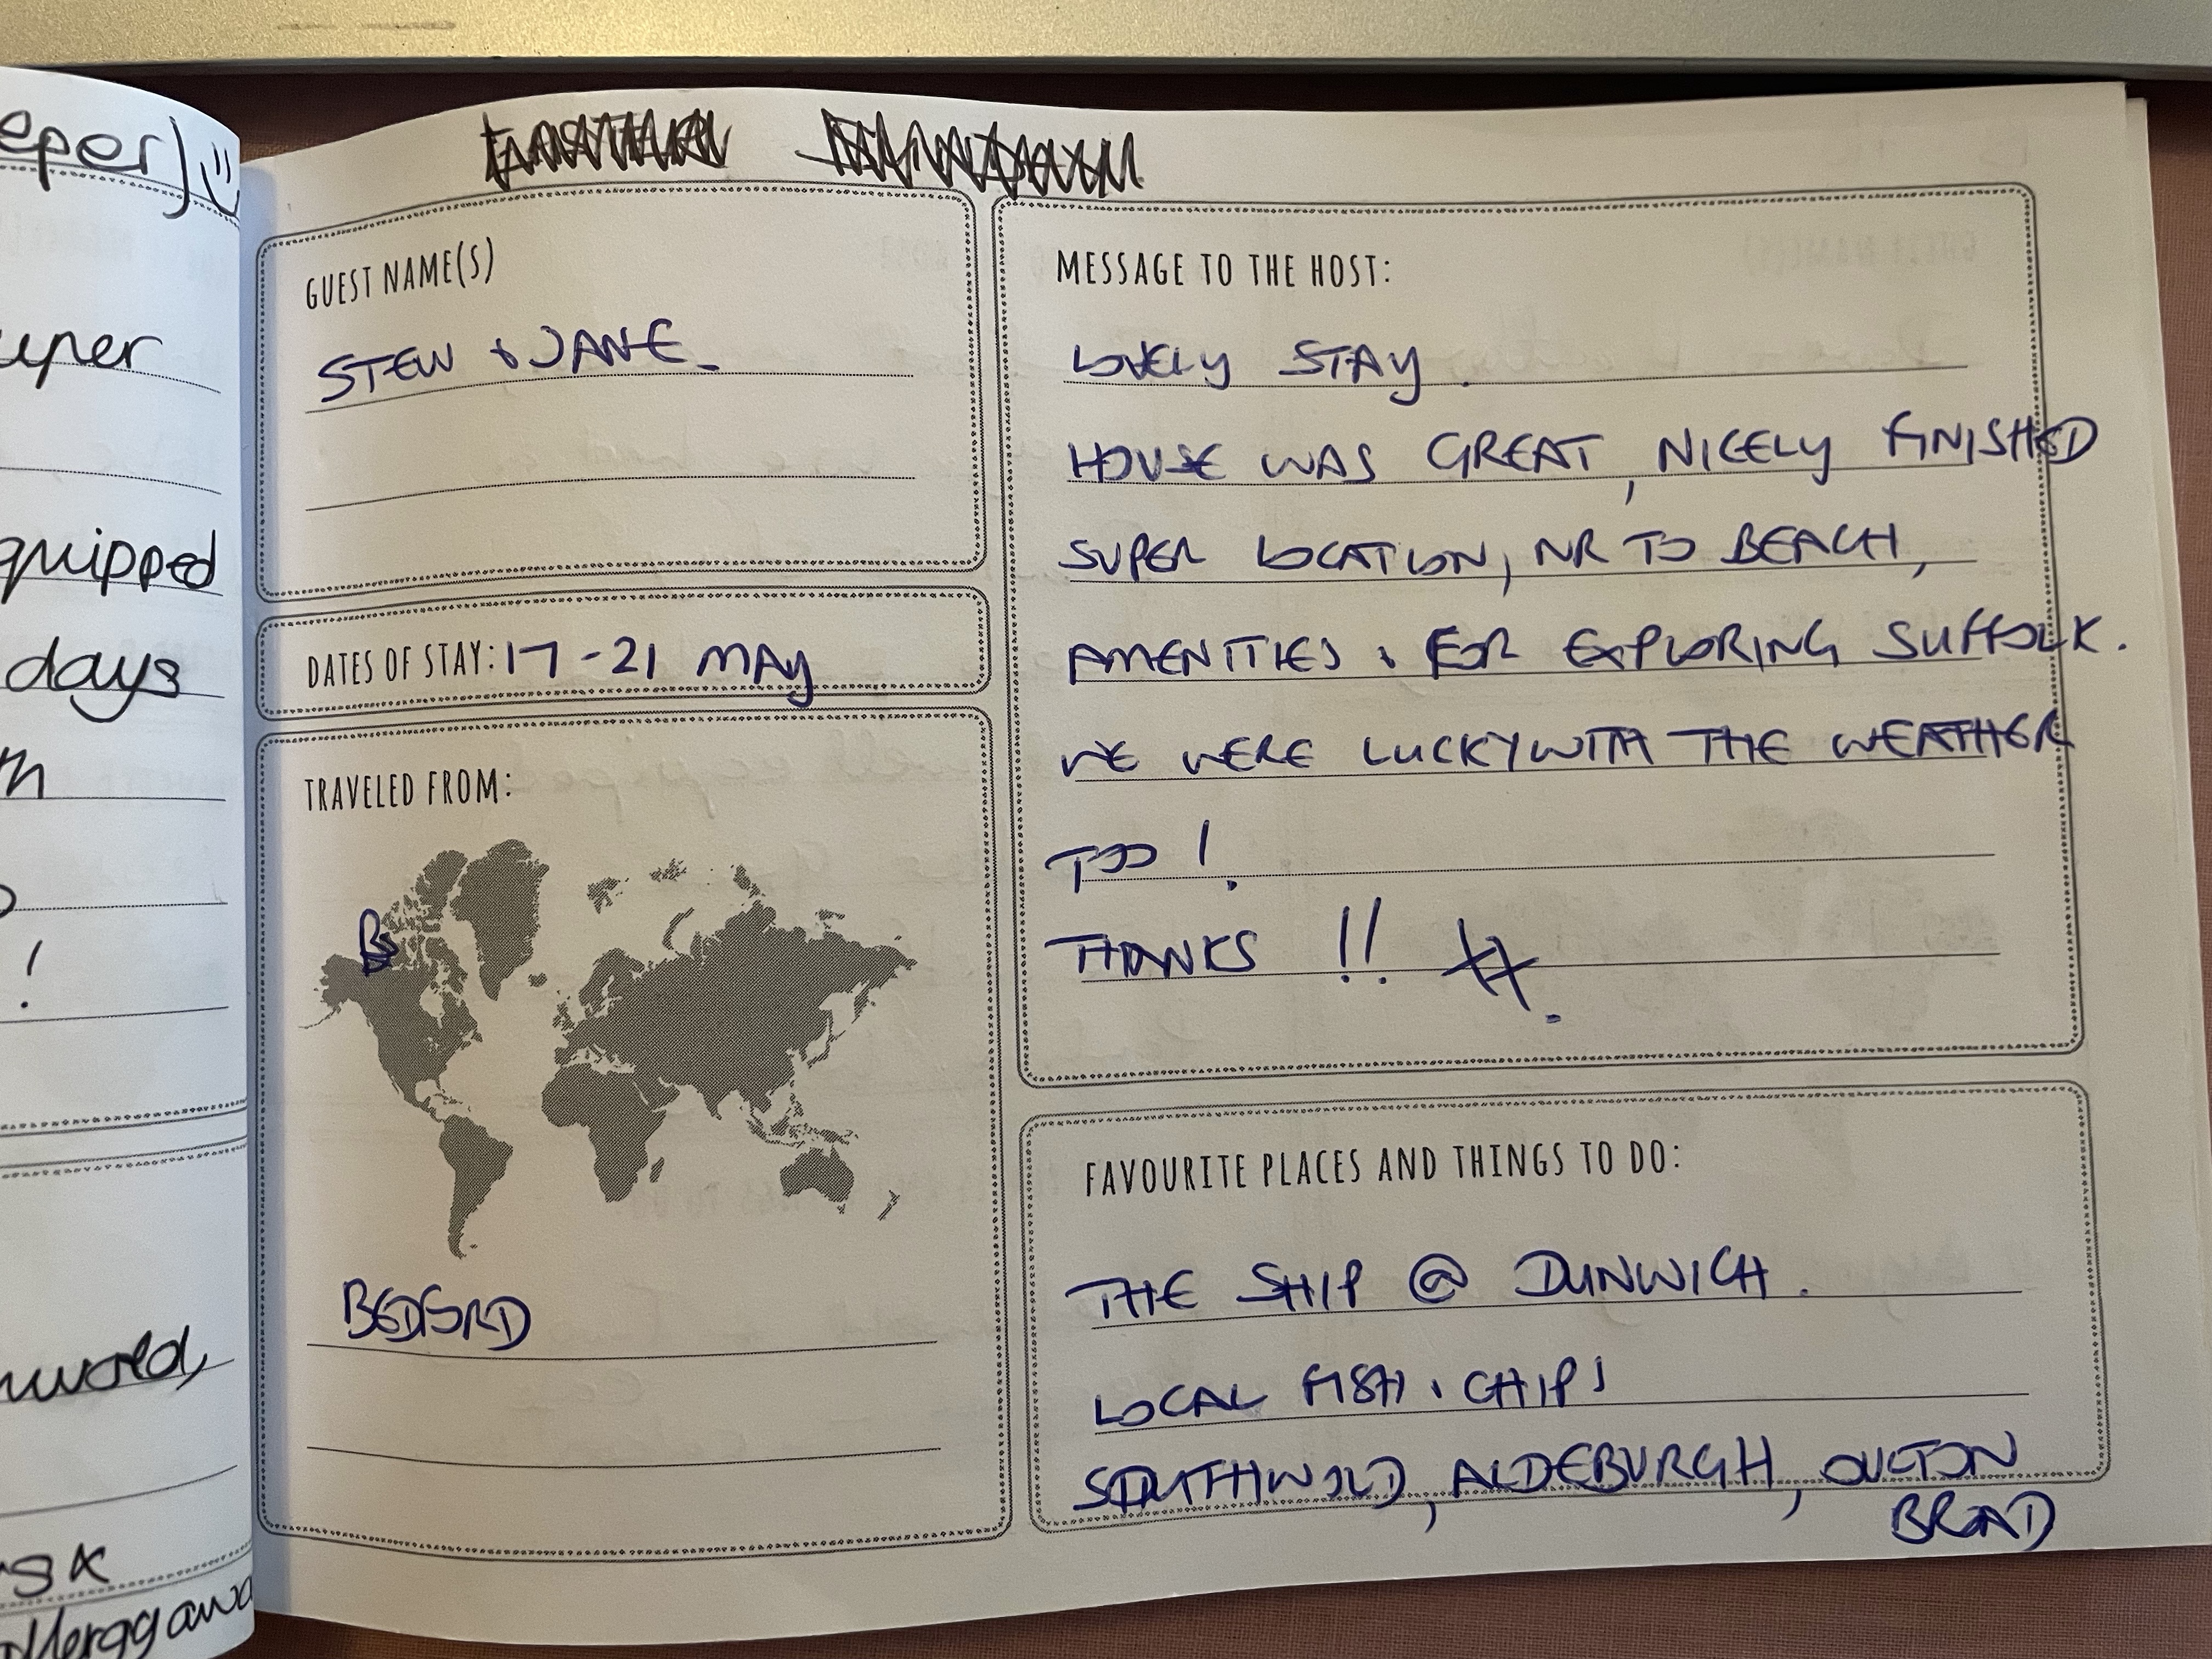 eper)
uper
quipped
days
m
!
nwold,
rs x
GUEST NAME(S)
STEW + JANE.
DATES OF STAY: 17-21 MAY
TRAVELED FROM:
B
BEDFORD
MESSAGE TO THE HOST:
LOVELY STAY.
HOUSE WAS GREAT, NICELY FINISHED
SUPER LOCATION, NR TO BEACH,
AMENITIES + FOR EXPLORING SUFFOLK.
WE WERE LUCKY WITH THE WEATHER
TOO!
THANKS !!
FAVOURITE PLACES AND THINGS TO DO:
THE SHIP @ DUNWICH.
LOCAL FISH + CHIPS
SOUTHWOLD, ALDEBURGH, OULTON
BROAD